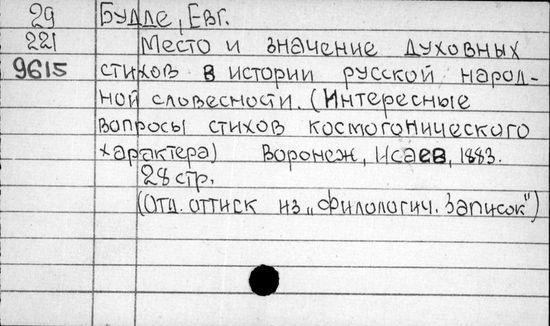 29 Будде, Евг.
221 Место и значение духовных
9615 стихов в истории русской народ-
ной словесности. (Интересные
вопросы стихов космогонического
характера) Воронеж, Исаев, 1883.
28 стр.
(Отд. оттиск из „Филологич. Записок")